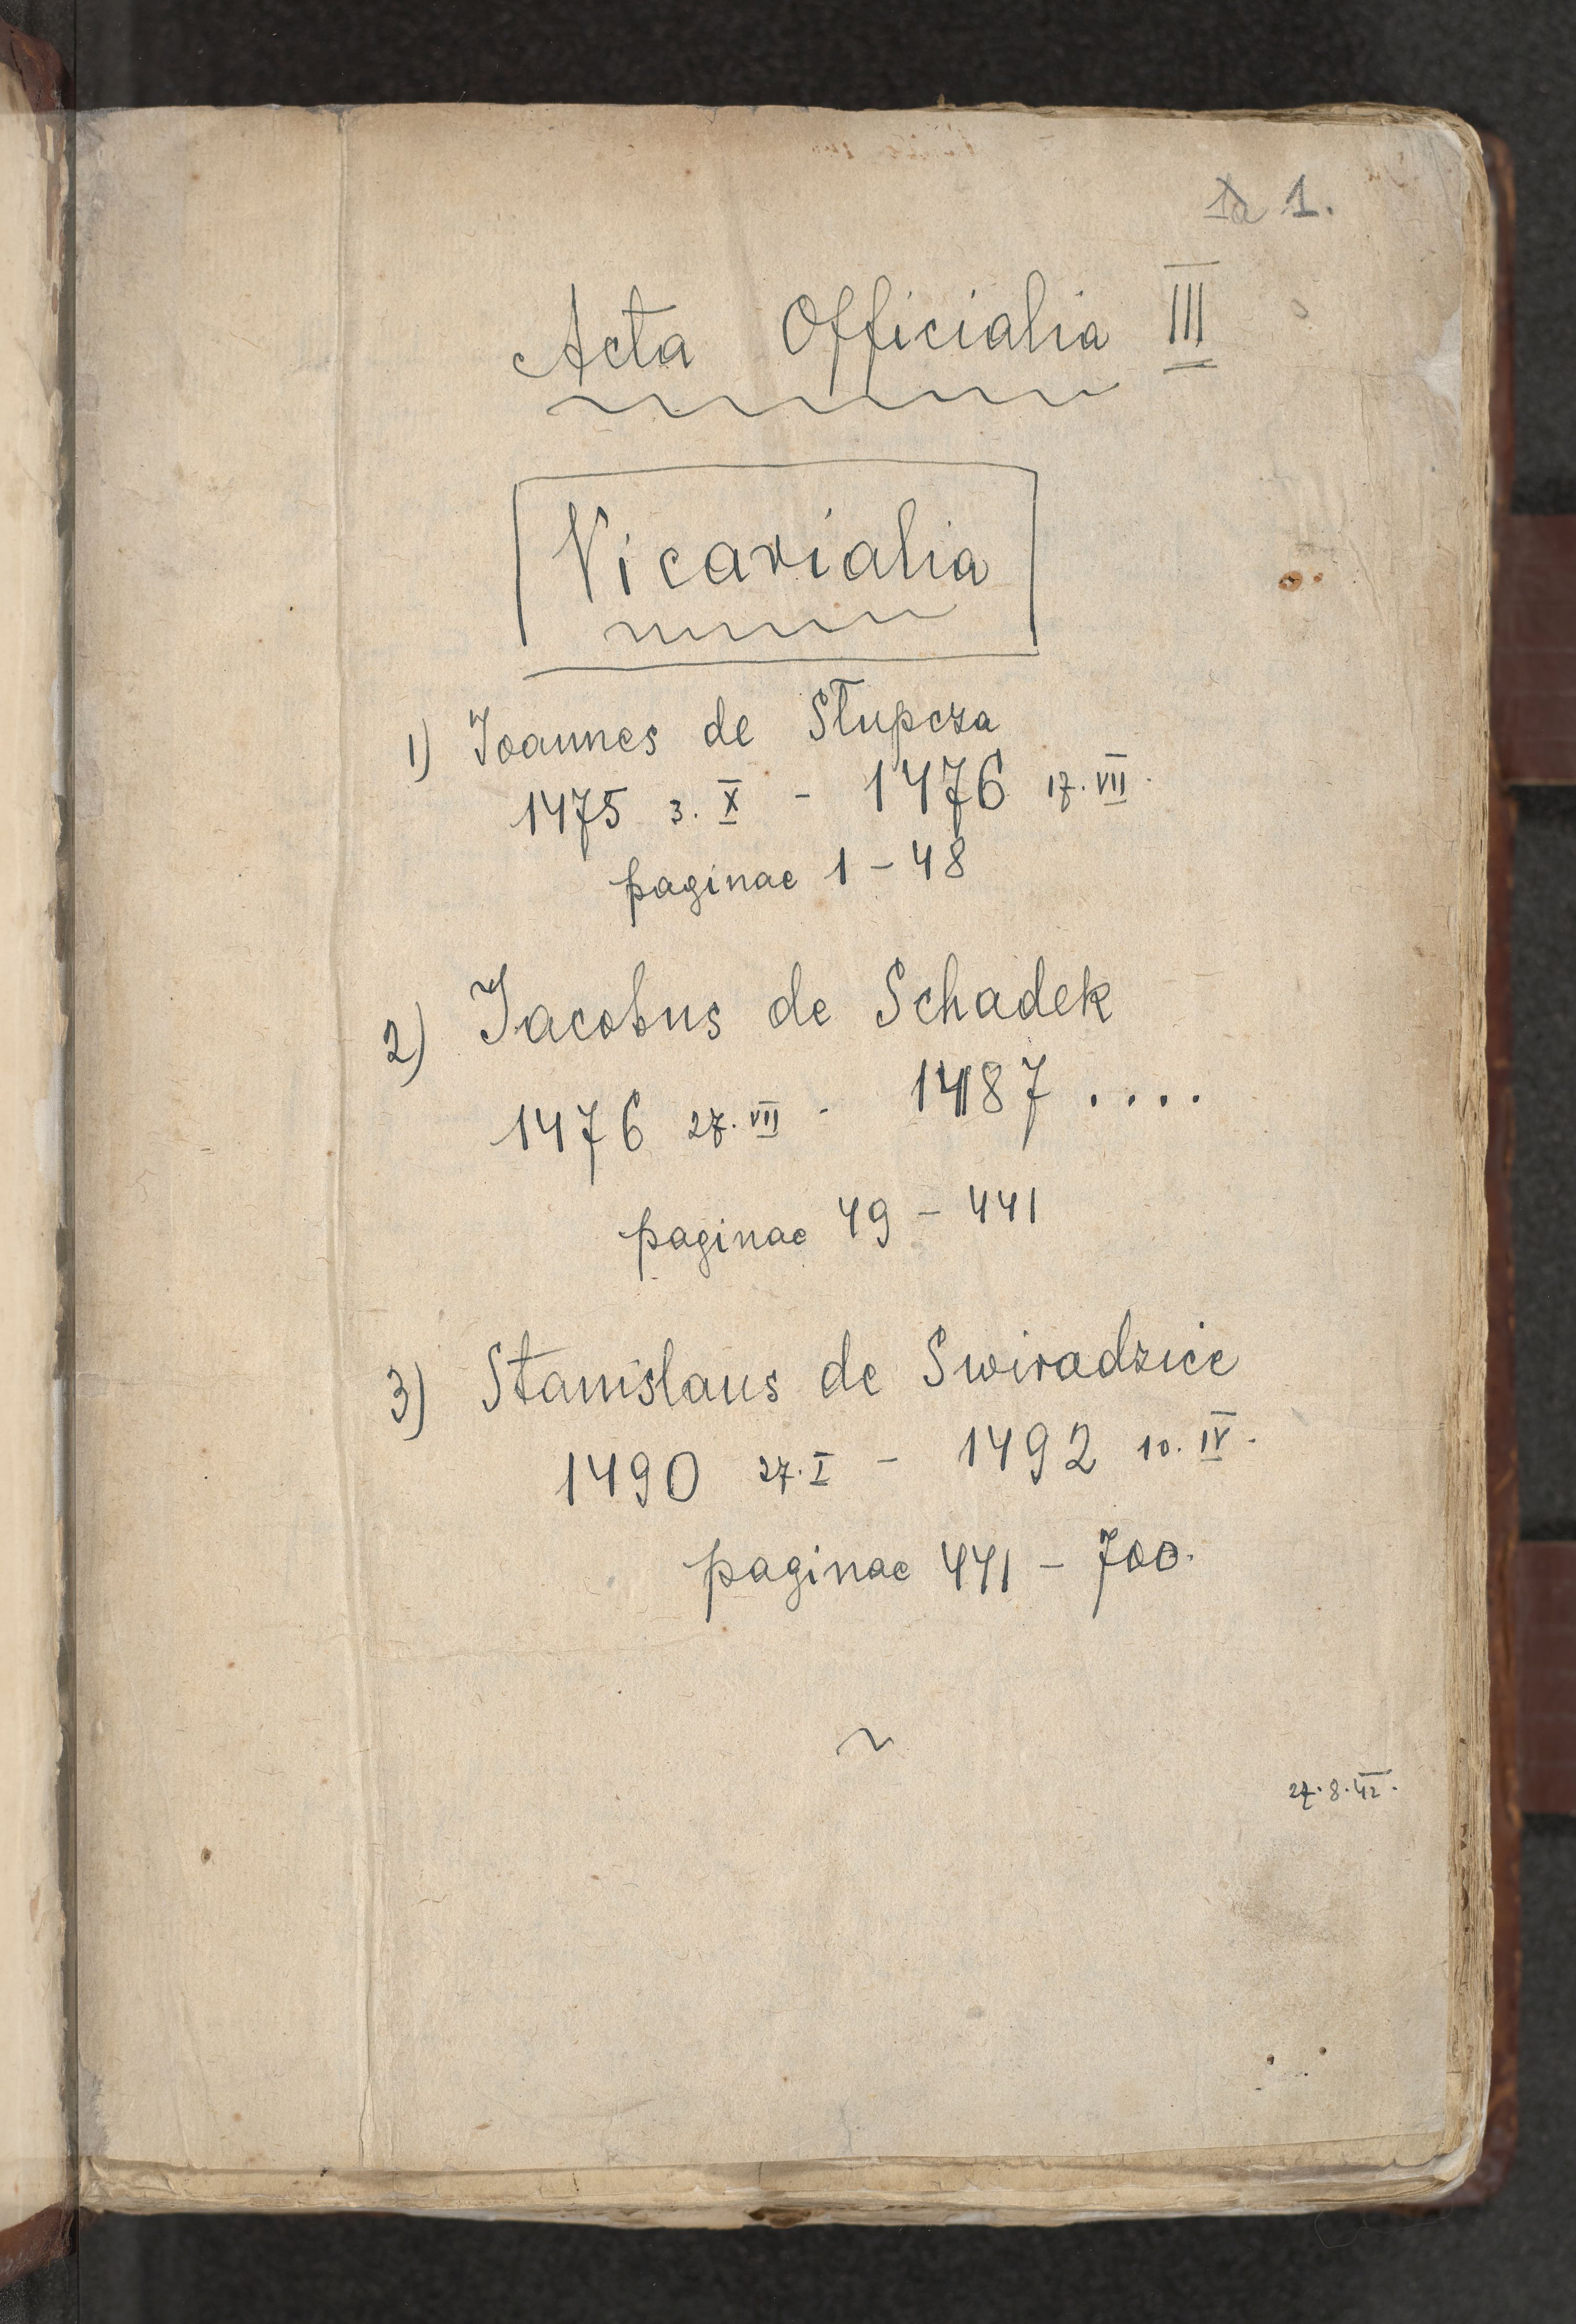 1a 1.
Acta Officialia III
Vicarialia
1) Ioannes de Słupcza
1475 3. X - 1476 17. VII.
paginae 1 - 48
2) Iacobus de Schadek
1476 27. VII - 1487 ....
paginae 49 - 441
3) Stanislaus de Swiradzice
1490 27. I - 1492 10. IV.
paginae 441 - 700.
27. 8. 42.